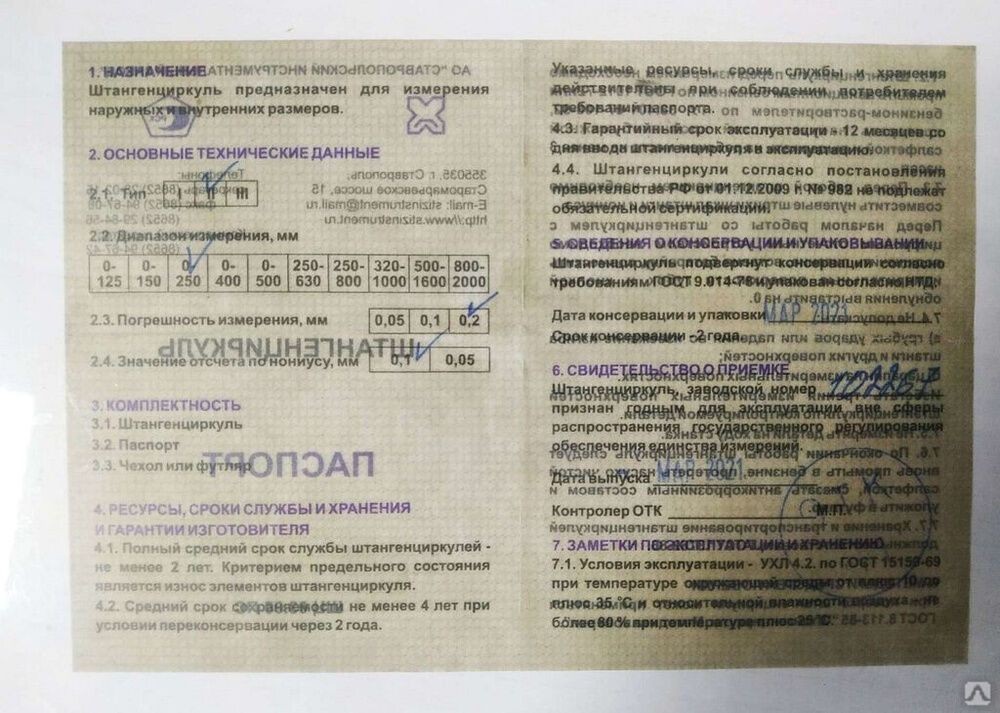 1. НАЗНАЧЕНИЕ
Штангенциркуль предназначен для измерения
наружных и внутренних размеров.
2. ОСНОВНЫЕ ТЕХНИЧЕСКИЕ ДАННЫЕ
2.1. Тип I II III
2.2. Диапазон измерения, мм
0-125 0-150 0-250 0-400 0-500 250-630 250-800 320-1000 500-1600 800-2000
2.3. Погрешность измерения, мм 0,05 0,1 0,2
2.4. Значение отсчета по нониусу, мм 0,1 0,05
3. КОМПЛЕКТНОСТЬ
3.1. Штангенциркуль
3.2. Паспорт
3.3. Чехол или футляр
4. РЕСУРСЫ, СРОКИ СЛУЖБЫ И ХРАНЕНИЯ
И ГАРАНТИИ ИЗГОТОВИТЕЛЯ
4.1. Полный средний срок службы штангенциркулей -
не менее 2 лет. Критерием предельного состояния
является износ элементов штангенциркуля.
4.2. Средний срок сохраняемости не менее 4 лет при
условии переконсервации через 2 года.
Указанные ресурсы, сроки службы и хранения
действительны при соблюдении потребителем
требований паспорта.
4.3. Гарантийный срок эксплуатации - 12 месяцев со
дня ввода штангенциркуля в эксплуатацию.
4.4. Штангенциркули согласно постановления
правительства РФ от 01.12.2009 № 982 не подлежат
обязательной сертификации.
5. СВЕДЕНИЯ О КОНСЕРВАЦИИ И УПАКОВЫВАНИИ
Штангенциркуль подвергнут консервации согласно
требованиям ГОСТ 9.014-78 и упакован согласно НТД.
Дата консервации и упаковки МАР 2021
Срок консервации - 2 года.
6. СВИДЕТЕЛЬСТВО О ПРИЕМКЕ
Штангенциркуль, заводской номер
признан годным для эксплуатации вне сферы
распространения государственного регулирования
обеспечения единства измерений.
Дата выпуска МАР 2021
Контролер ОТК М.П.
7. ЗАМЕТКИ ПО ЭКСПЛУАТАЦИИ И ХРАНЕНИЮ
7.1. Условия эксплуатации - УХЛ 4.2. по ГОСТ 15150-69
при температуре окружающей среды от плюс 10 до
плюс 35 °С и относительной влажности воздуха не
более 80 % при температуре плюс 25 °С.